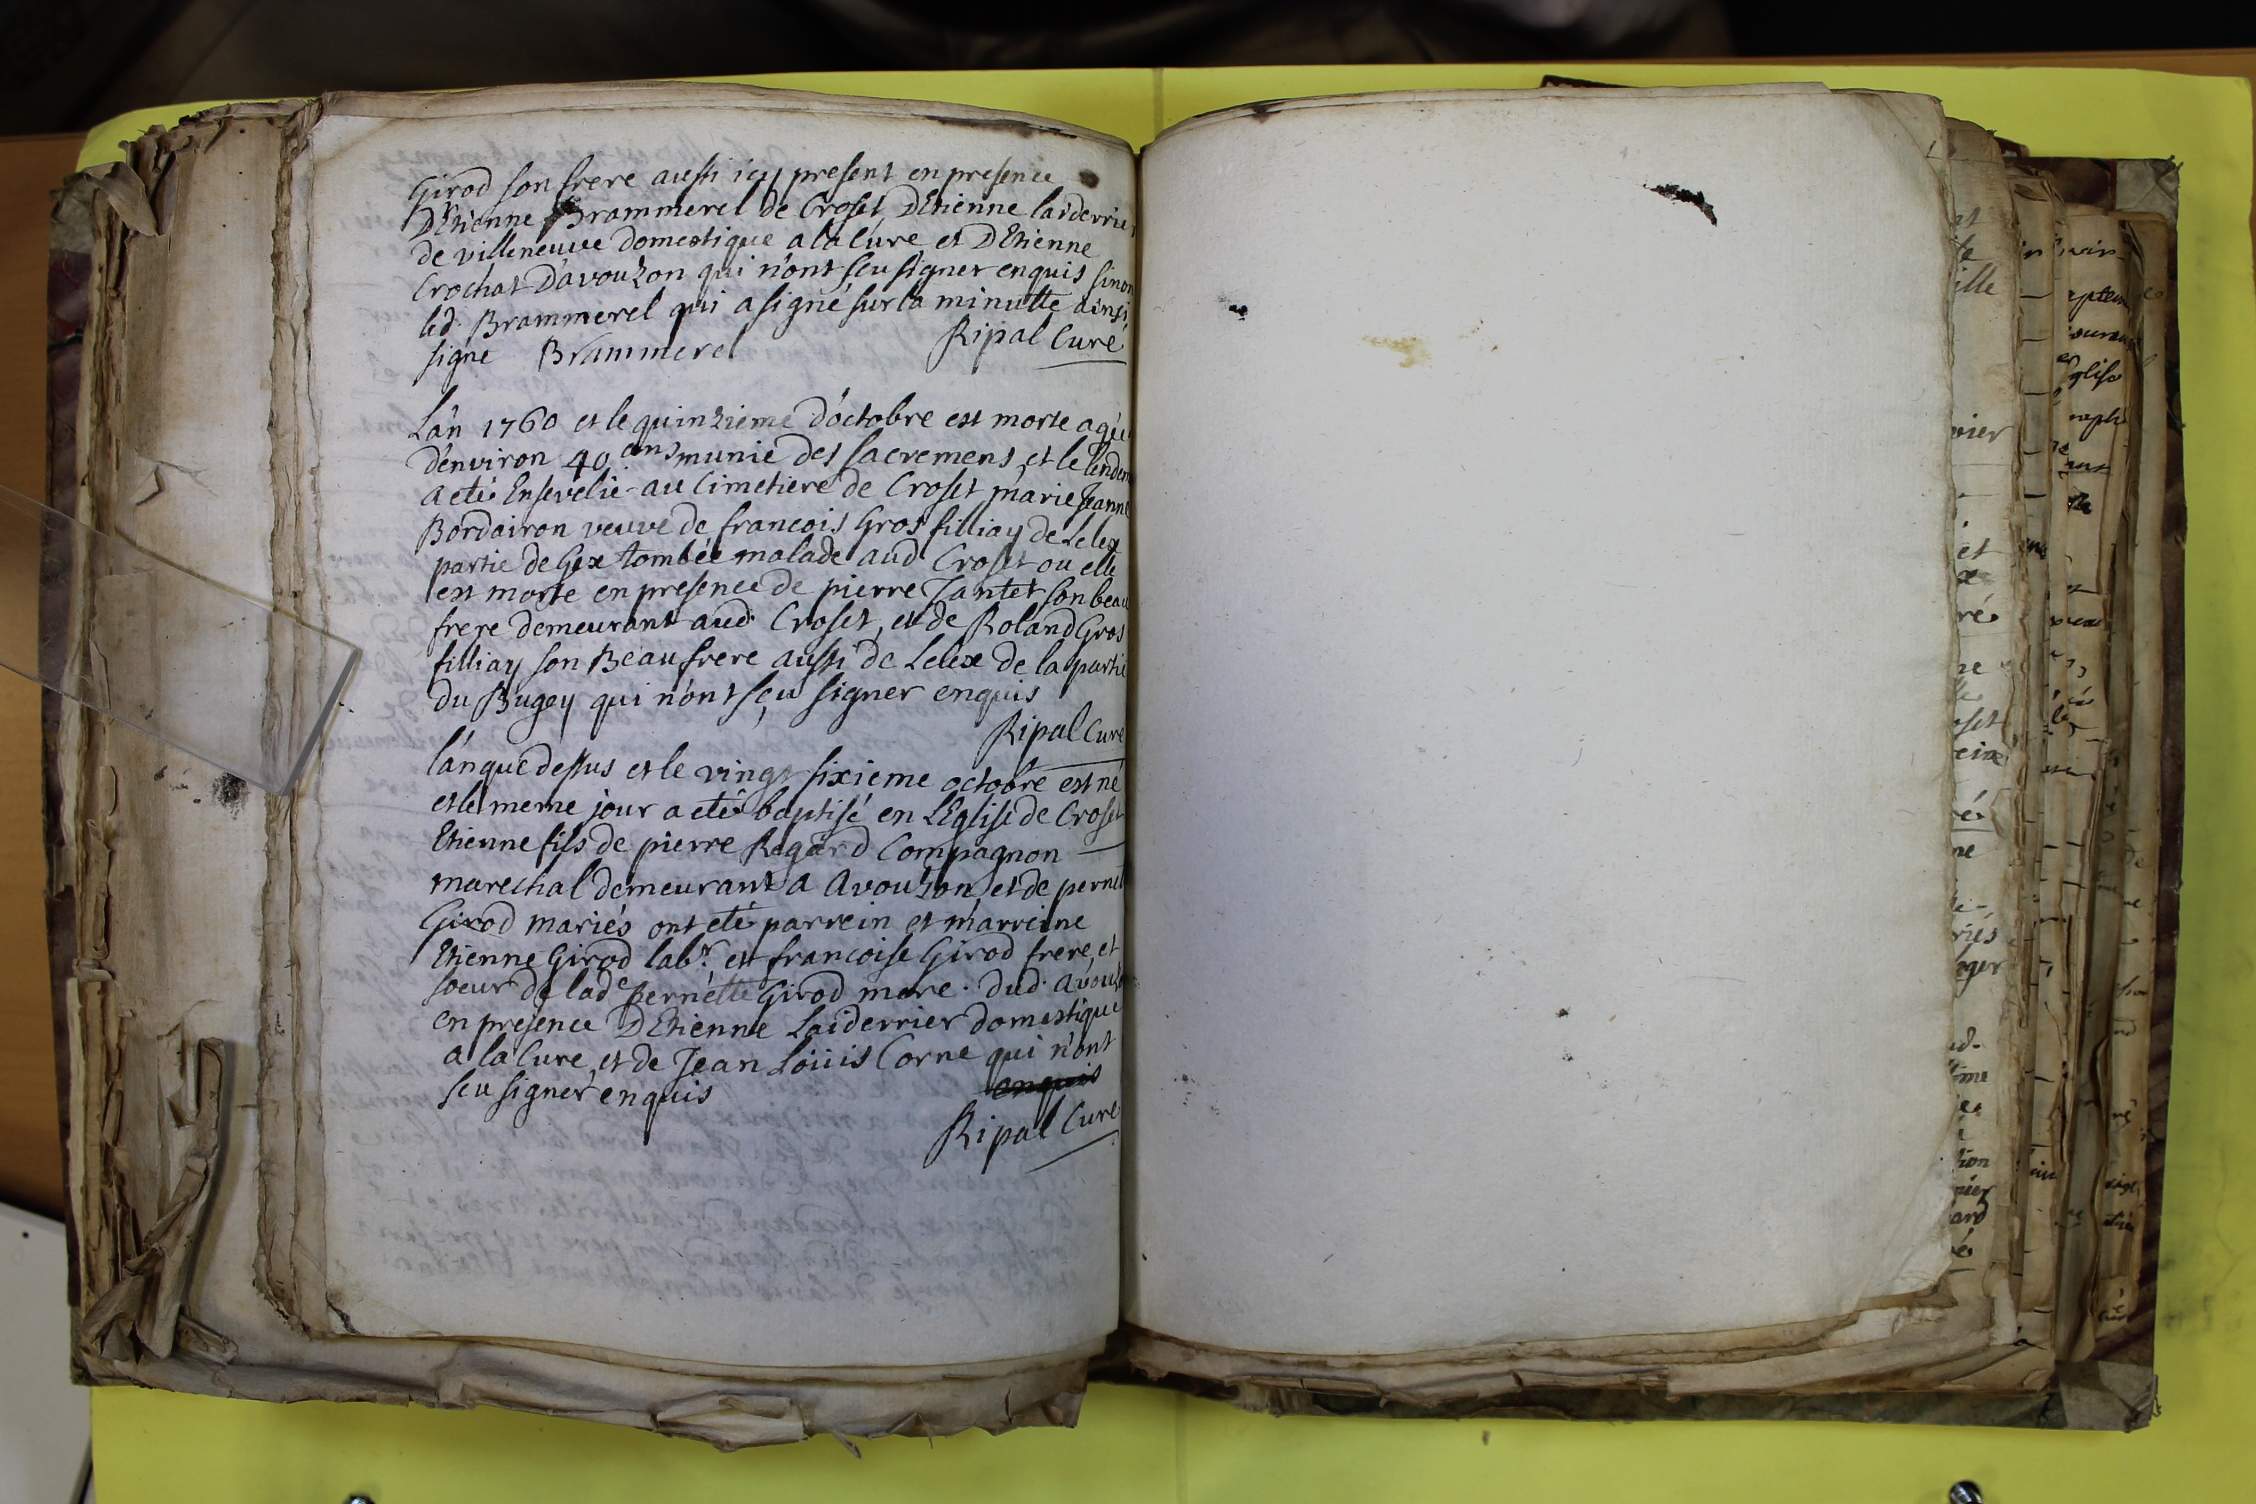 Girod son frere aussi icy present en presence
D'Etienne Brammerel de Croset, D'Etienne laiderrier
de villeneuve domestique a la Cure et D'Etienne
Crochat D'avouzon qui n'ont sçu signer enquis sinon
led. Brammerel qui a signé sur la minutte ainsi
signé Brammerel Ripal Curé
L'an 1760 et le quinzieme d'octobre est morte agée
d'environ 40 ans munie des sacremens, et le lendem
a eté Ensevelie au Cimetiere de Croset marie Jeanne
Bordairon veuve de francois Gros filliay de Lelex
partie de Gex tombée malade aud. Croset ou elle
est morte en presence de pierre Jantet son beau
frere demeurant aud. Croset, et de Roland Gros
filliay son Beau frere aussi de Lelex de la partie
du Bugey qui n'ont sçu signer enquis
Ripal Curé
l'an que dessus et le vingt sixieme octobre est né
et le meme jour a eté baptisé en l'Eglise de Croset
Etienne fils de pierre Regard Compagnon
marechal demeurant a Avouzon, et de pernet
Girod mariés ont eté parrein et marreine
Etienne Girod labr. et francoise Girod frere, et
soeur de lade pernette Girod mere. dud. avouzo
en presence D'Etienne Laiderrier domestique
a la Cure, et de Jean Loüis Corne qui n'ont
sçu signer enquis enquis
Ripal Curé